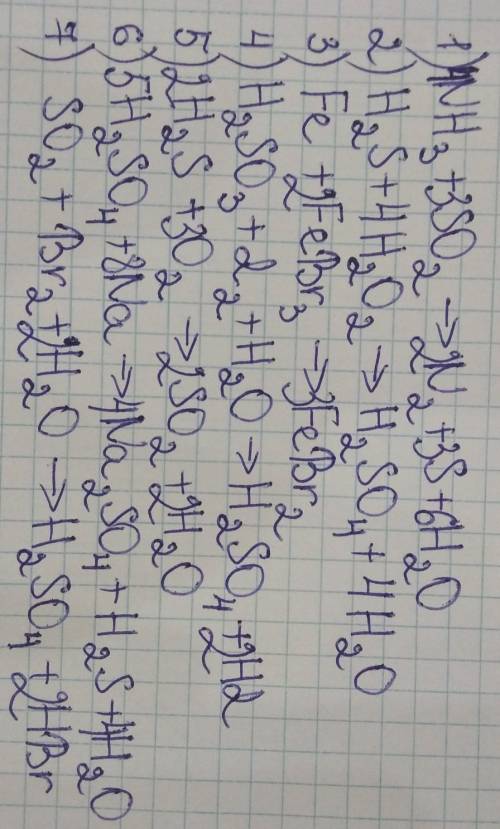 1) 4NH3 + 3SO2 → 2N2 + 3S + 6H2O
2) H2S + 4H2O2 → H2SO4 + 4H2O
3) Fe + 2FeBr3 → 3FeBr2
4) H2SO3 + I2 + H2O → H2SO4 + 2HI
5) 2H2S + 3O2 → 2SO2 + 2H2O
6) 5H2SO4 + 8Na → 4Na2SO4 + H2S + 4H2O
7) SO2 + Br2 + 2H2O → H2SO4 + 2HBr